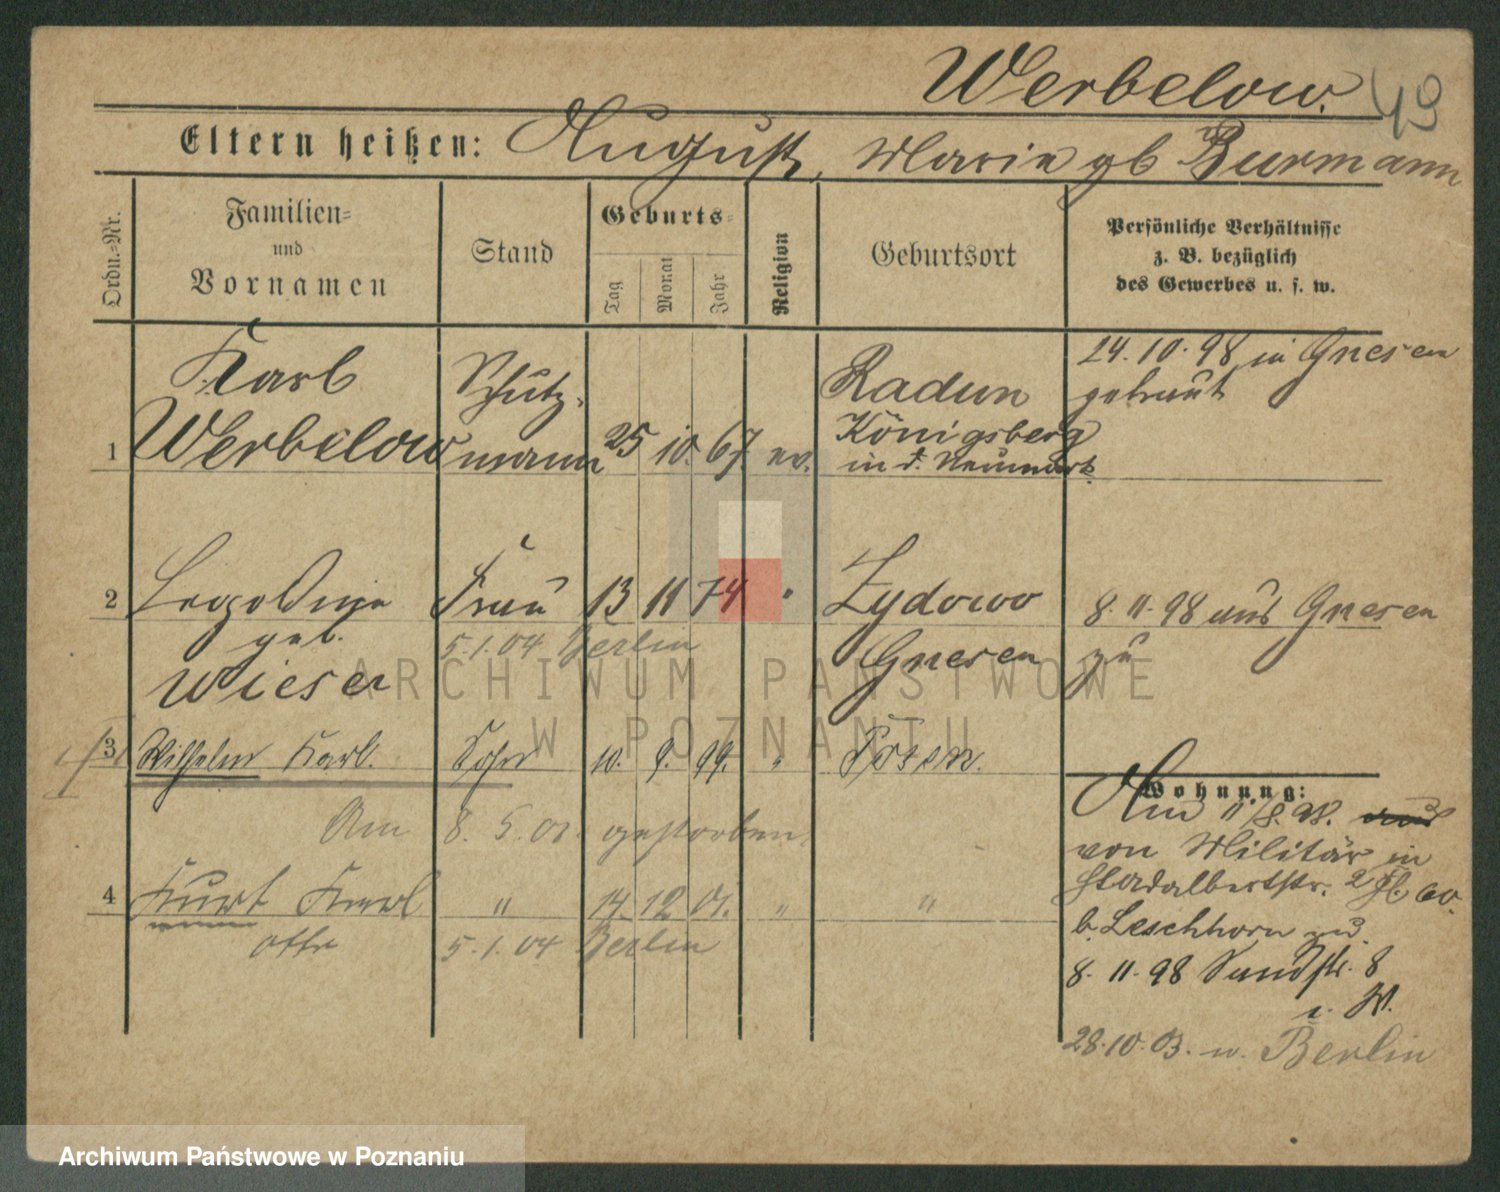 Werbelow. 49
Eltern heißen: August, Marie gb Burmann
Ordn.-Nr.
Familien- und Vornamen
Stand
Geburts-
Tag Monat Jahr
Religion
Geburtsort
Persönliche Verhältnisse
z. B. bezüglich
des Gewerbes u. s. w.
Karl Schutz- Radun 24.10.98 in Gnesen
1 Werbelow mann 25 10. 67. ev. Königsberg getraut
in d. Neumark
2 Leopoldine Frau 13 11 74 " Zydowo 8.11.98 aus Gnesen
geb. 5.1.04 Berlin Gnesen zu
Wieser
3 Wilhelm Karl. Sohn 10. 9. 99. " Posen.
Am 8. 5. 01. gestorben
4 Kurt Karl " 14. 12 01. " "
Otto 5.1.04 Berlin
Wohnung:
Am 11/8.98.
von Militär in
Stadalbertstr. 2
b. Leschhorn zu.
8.11.98 Sandstr. 8
28.10.03. n. Berlin
ARCHIWUM PAŃSTWOWE
W POZNANIU
Archiwum Państwowe w Poznaniu